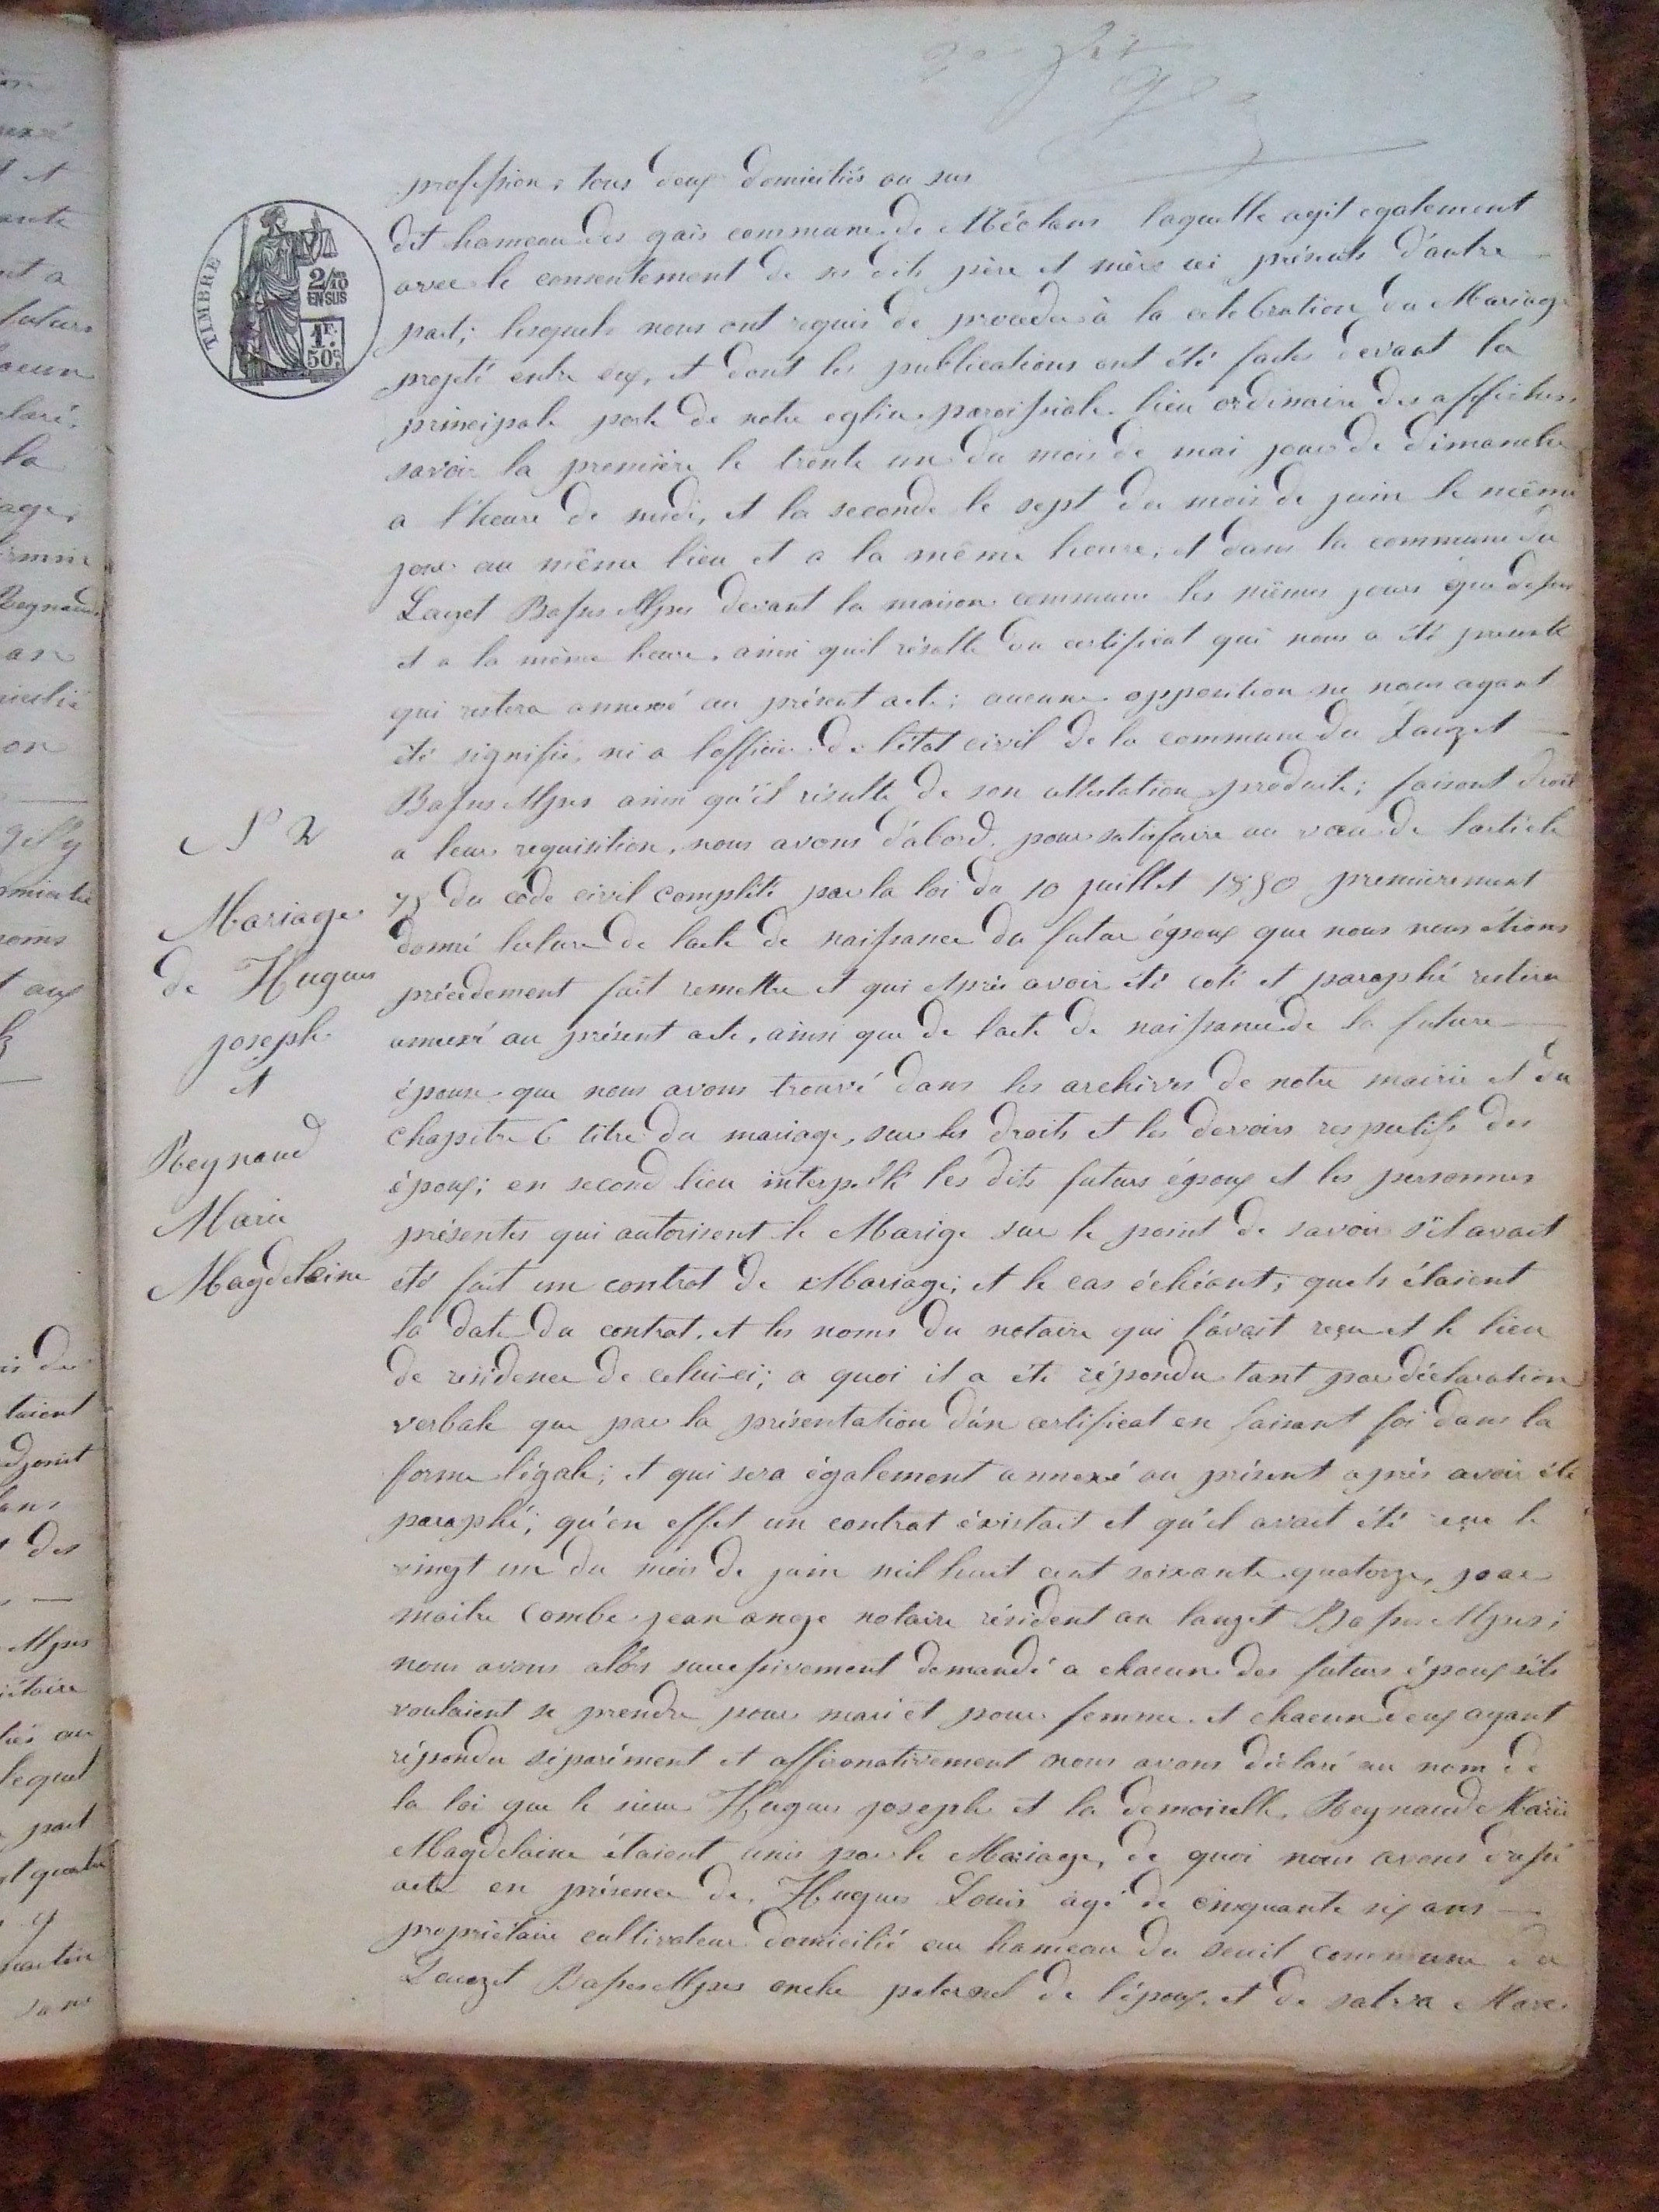 profession, tous deux domiciliés au sus
dit hameau des gais commune de Méolans laquelle agit egalement
avec le consentement de ses dits père et mère ici présents d'autre
part; lesquels nous ont requis de procéder à la celebration du Mariage
projeté entre eux, et dont les publications ont été faites devant la
principale porte de notre eglise paroissiale lieu ordinaire des affiches,
savoir la première le trente un du mois de mai jour de dimanche
a l'heure de midi, et la seconde le sept du mois de juin le même
jour au même lieu et a la même heure; et dans la commune du
Lauzet Basses Alpes devant la maison commune les mêmes jours que dessus
et a la même heure, ainsi quil résulte du certificat qui nous a été presenté
qui restera annexé au présent acte; aucune opposition ne nous ayant
été signifié, ni a l'officier de l'état civil de la commune du Lauzet
Basses Alpes ainsi qu'il résulte de son attestation produite; faisant droit
a leur requisition, nous avons d'abord, pour satisfaire au vœu de l'article
75 du code civil complété par la loi du 10 juillet 1850 premierement
donné lecture de l'acte de naissance du futur époux que nous nous étions
précédement fait remettre et qui après avoir été coté et paraphé restera
annexé au présent acte, ainsi que de l'acte de naissance de la future
épouse que nous avons trouvé dans les archives de notre mairie et du
chapitre 6 titre du mariage, sur les droits et les devoirs respectifs des
époux; en second lieu interpellé les dits futurs époux et les personnes
présentes qui autorisent le Marige sur le point de savoir s'il avait
été fait un contrat de Mariage; et le cas échéant, quels étaient
la date du contrat, et les noms du notaire qui l'avait reçu et le lieu
de résidence de celui-ci; a quoi il a été répondu tant par déclaration
verbale que par la présentation d'un certificat en faisant foi dans la
forme légale; et qui sera également annexé au présent après avoir été
paraphé; qu'en effet un contrat éxistait et qu'il avait été reçu le
vingt un du mois de juin mil huit cent soixante quatorze, par
maitre Combe jean ange notaire résident au lauzet Basses Alpes;
nous avons alors successivement demandé a chacun des futurs époux s'ils
voulaient se prendre pour mari et pour femme et chacun deux ayant
répondu séparément et affirmativement nous avons déclaré au nom de
la loi que le sieur Hugues joseph et la demoiselle Reynaud Marie
Magdelaine étaient unis par le Mariage, de quoi nous avons dressé
acte en présence de Hugues Louis agé de cinquante six ans
propriétaire cultivateur domicilié au hameau du seuil commune du
Lauzet Basses Alpes oncle paternel de l'époux, et de Marc
N° 2
Mariage
de Hugues
joseph
et
Reynaud
Marie
Magdelaine
TIMBRE
2/10
EN SUS
1F.
50c